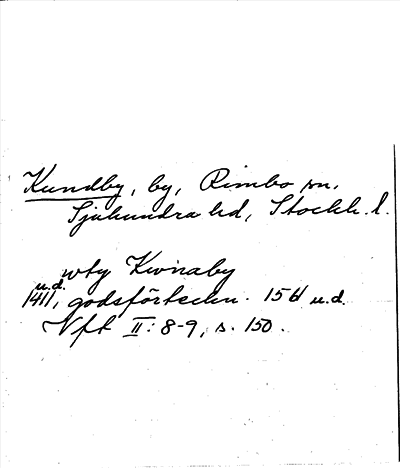 Kundby, by, Rimbo sn,
Sjuhundra hd, Stockh. l.
wty Kwnaby
u.d.
1411, godsförteckn. 15 bl u.d.
Nft II: 8-9, s. 150.